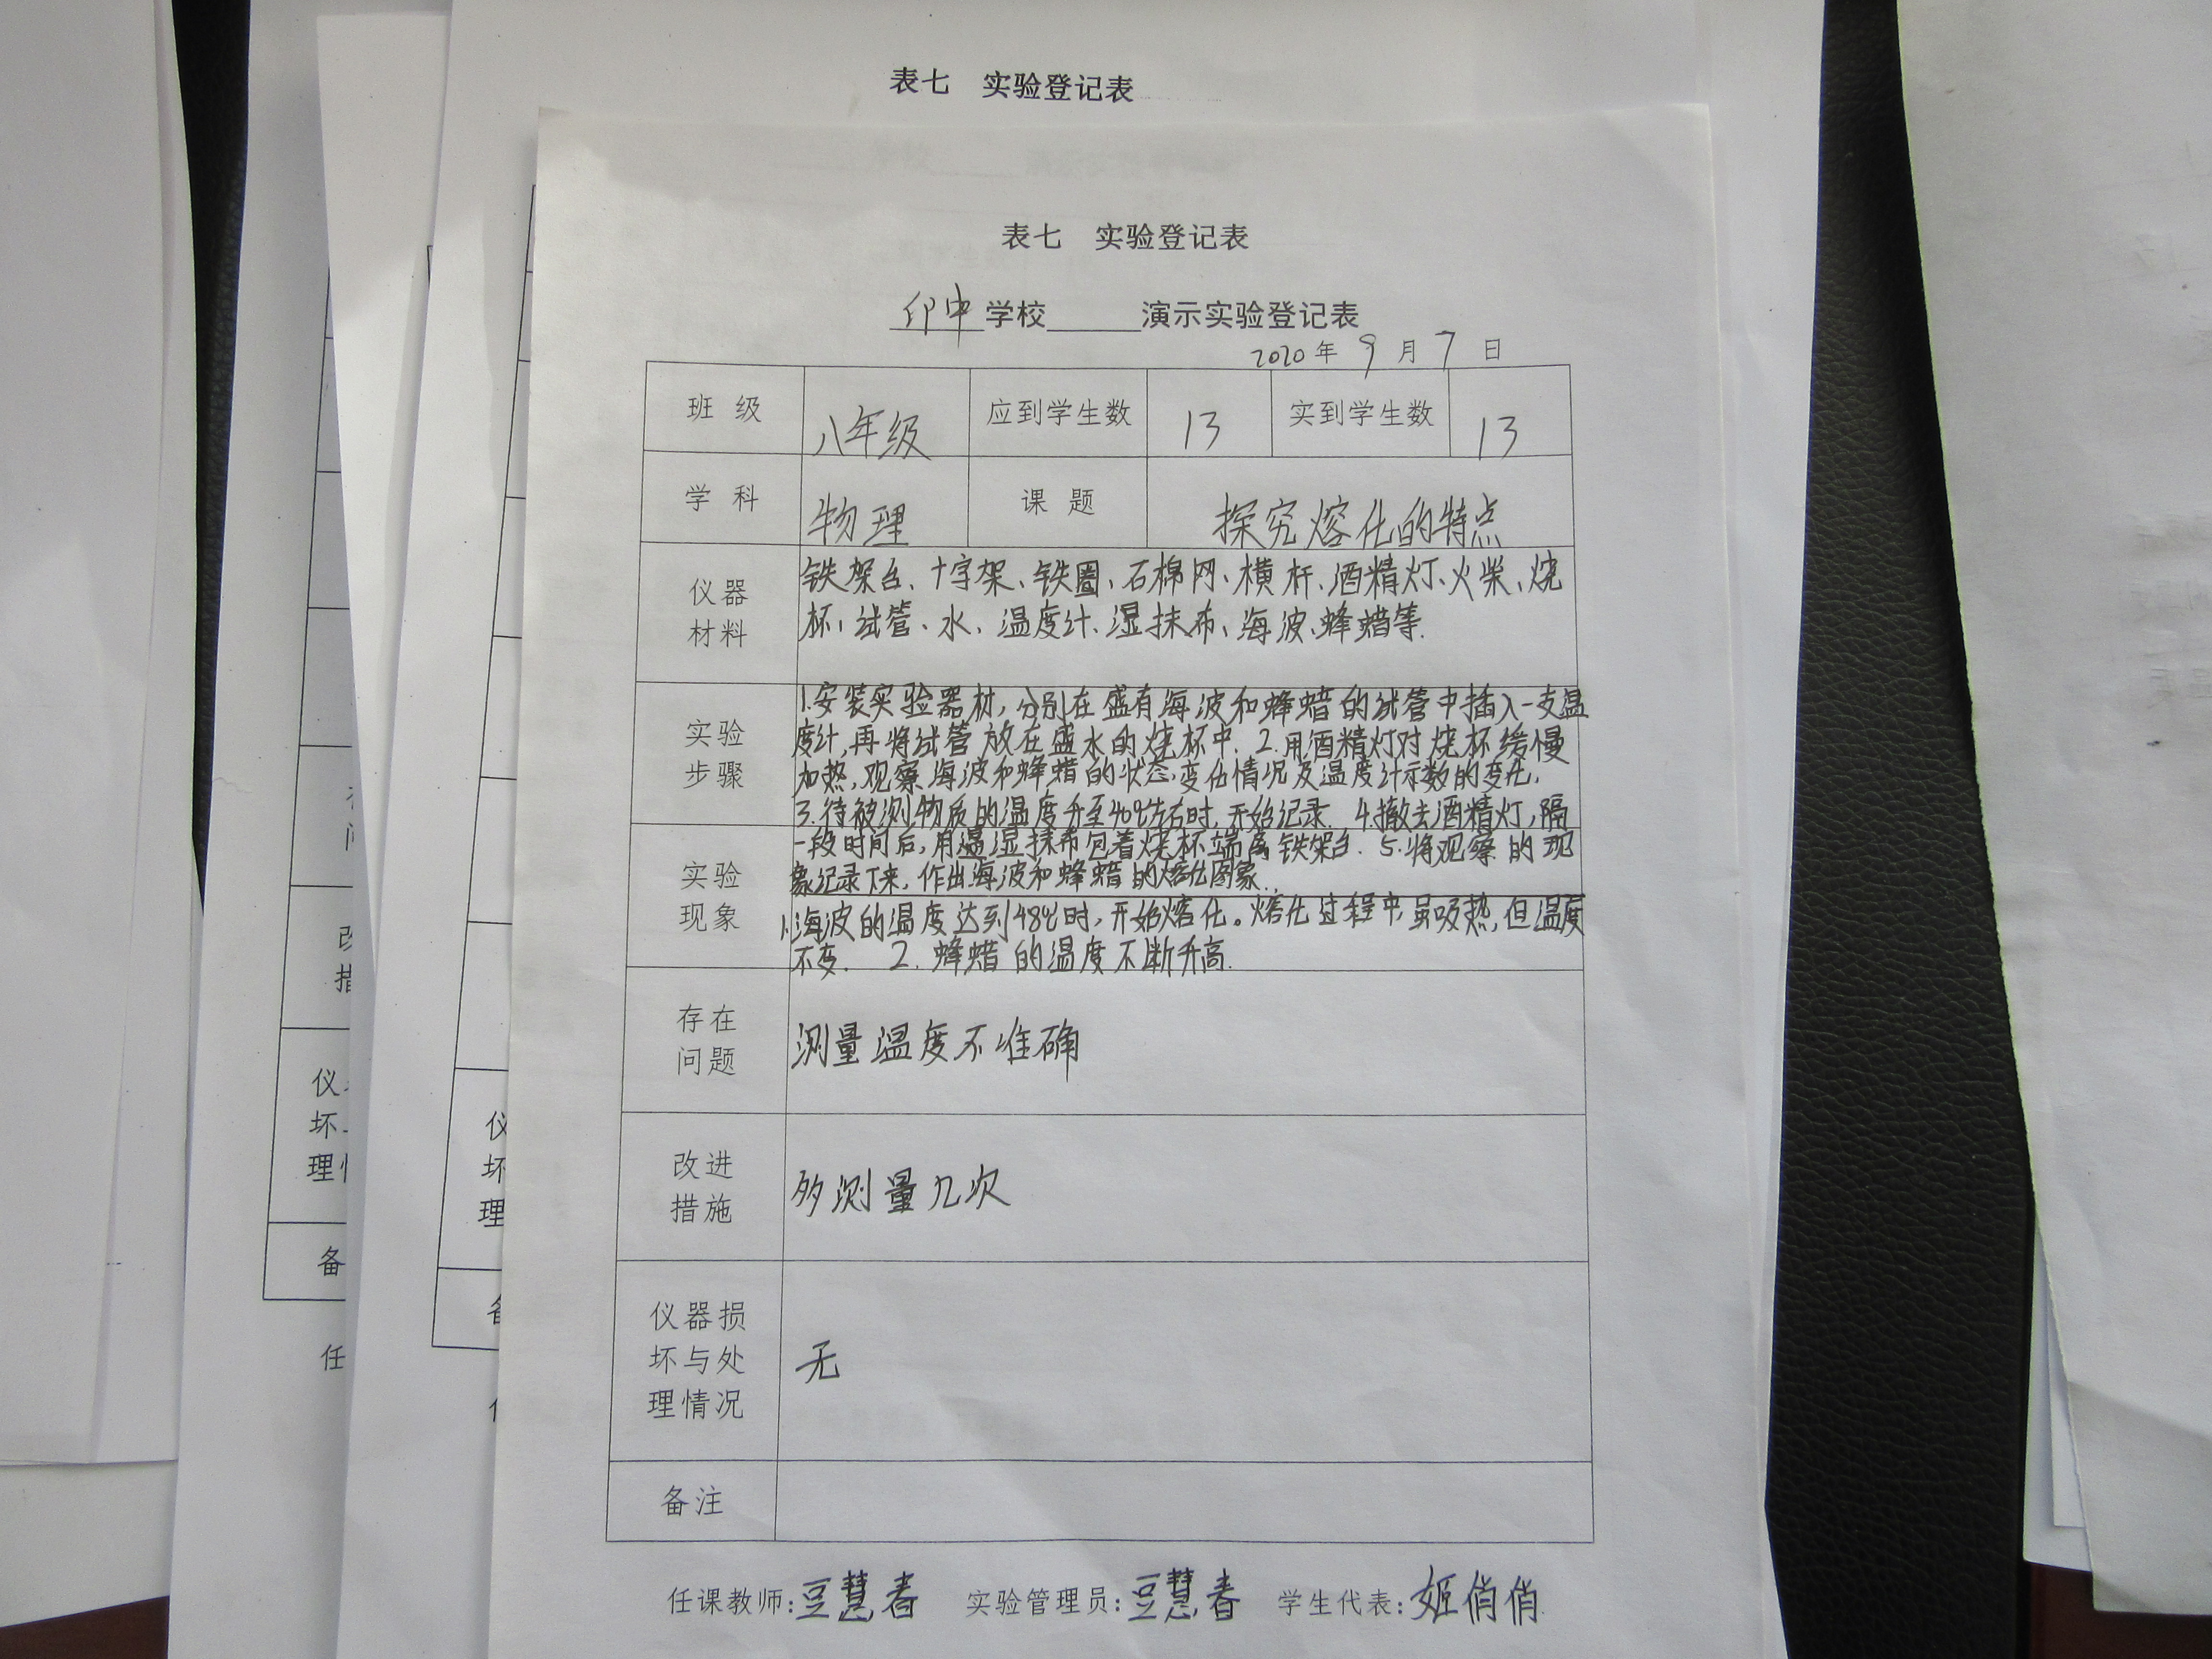 表七 实验登记表
表七 实验登记表
印中学校 演示实验登记表
2020年 9 月 7 日
班 级 八年级 应到学生数 13 实到学生数 13
学 科 物理 课 题 探究熔化的特点
仪器
材料
铁架台、十字架、铁圈、石棉网、横杆、酒精灯、火柴、烧
杯、试管、水、温度计、湿抹布、海波、蜂蜡等.
实验
步骤
1.安装实验器材,分别在盛有海波和蜂蜡的试管中插入一支温
度计,再将试管放在盛水的烧杯中. 2.用酒精灯对烧杯缓慢
加热,观察海波和蜂蜡的状态变化情况及温度计示数的变化,
3.待被测物质的温度升至40℃左右时,开始记录. 4.撤去酒精灯,隔
一段时间后,用湿抹布包着烧杯端离铁架台. 5.将观察的现
象记录下来,作出海波和蜂蜡的熔化图象.
实验
现象
1.海波的温度达到48℃时,开始熔化。熔化过程中,虽吸热,但温度
不变. 2. 蜂蜡的温度不断升高.
存在
问题
测量温度不准确
改进
措施
多测量几次
仪器损
坏与处
理情况
无
备注
任课教师:豆慧春 实验管理员:豆慧春 学生代表:姬俏俏
仪
坏
理
备
任
仪
坏
理